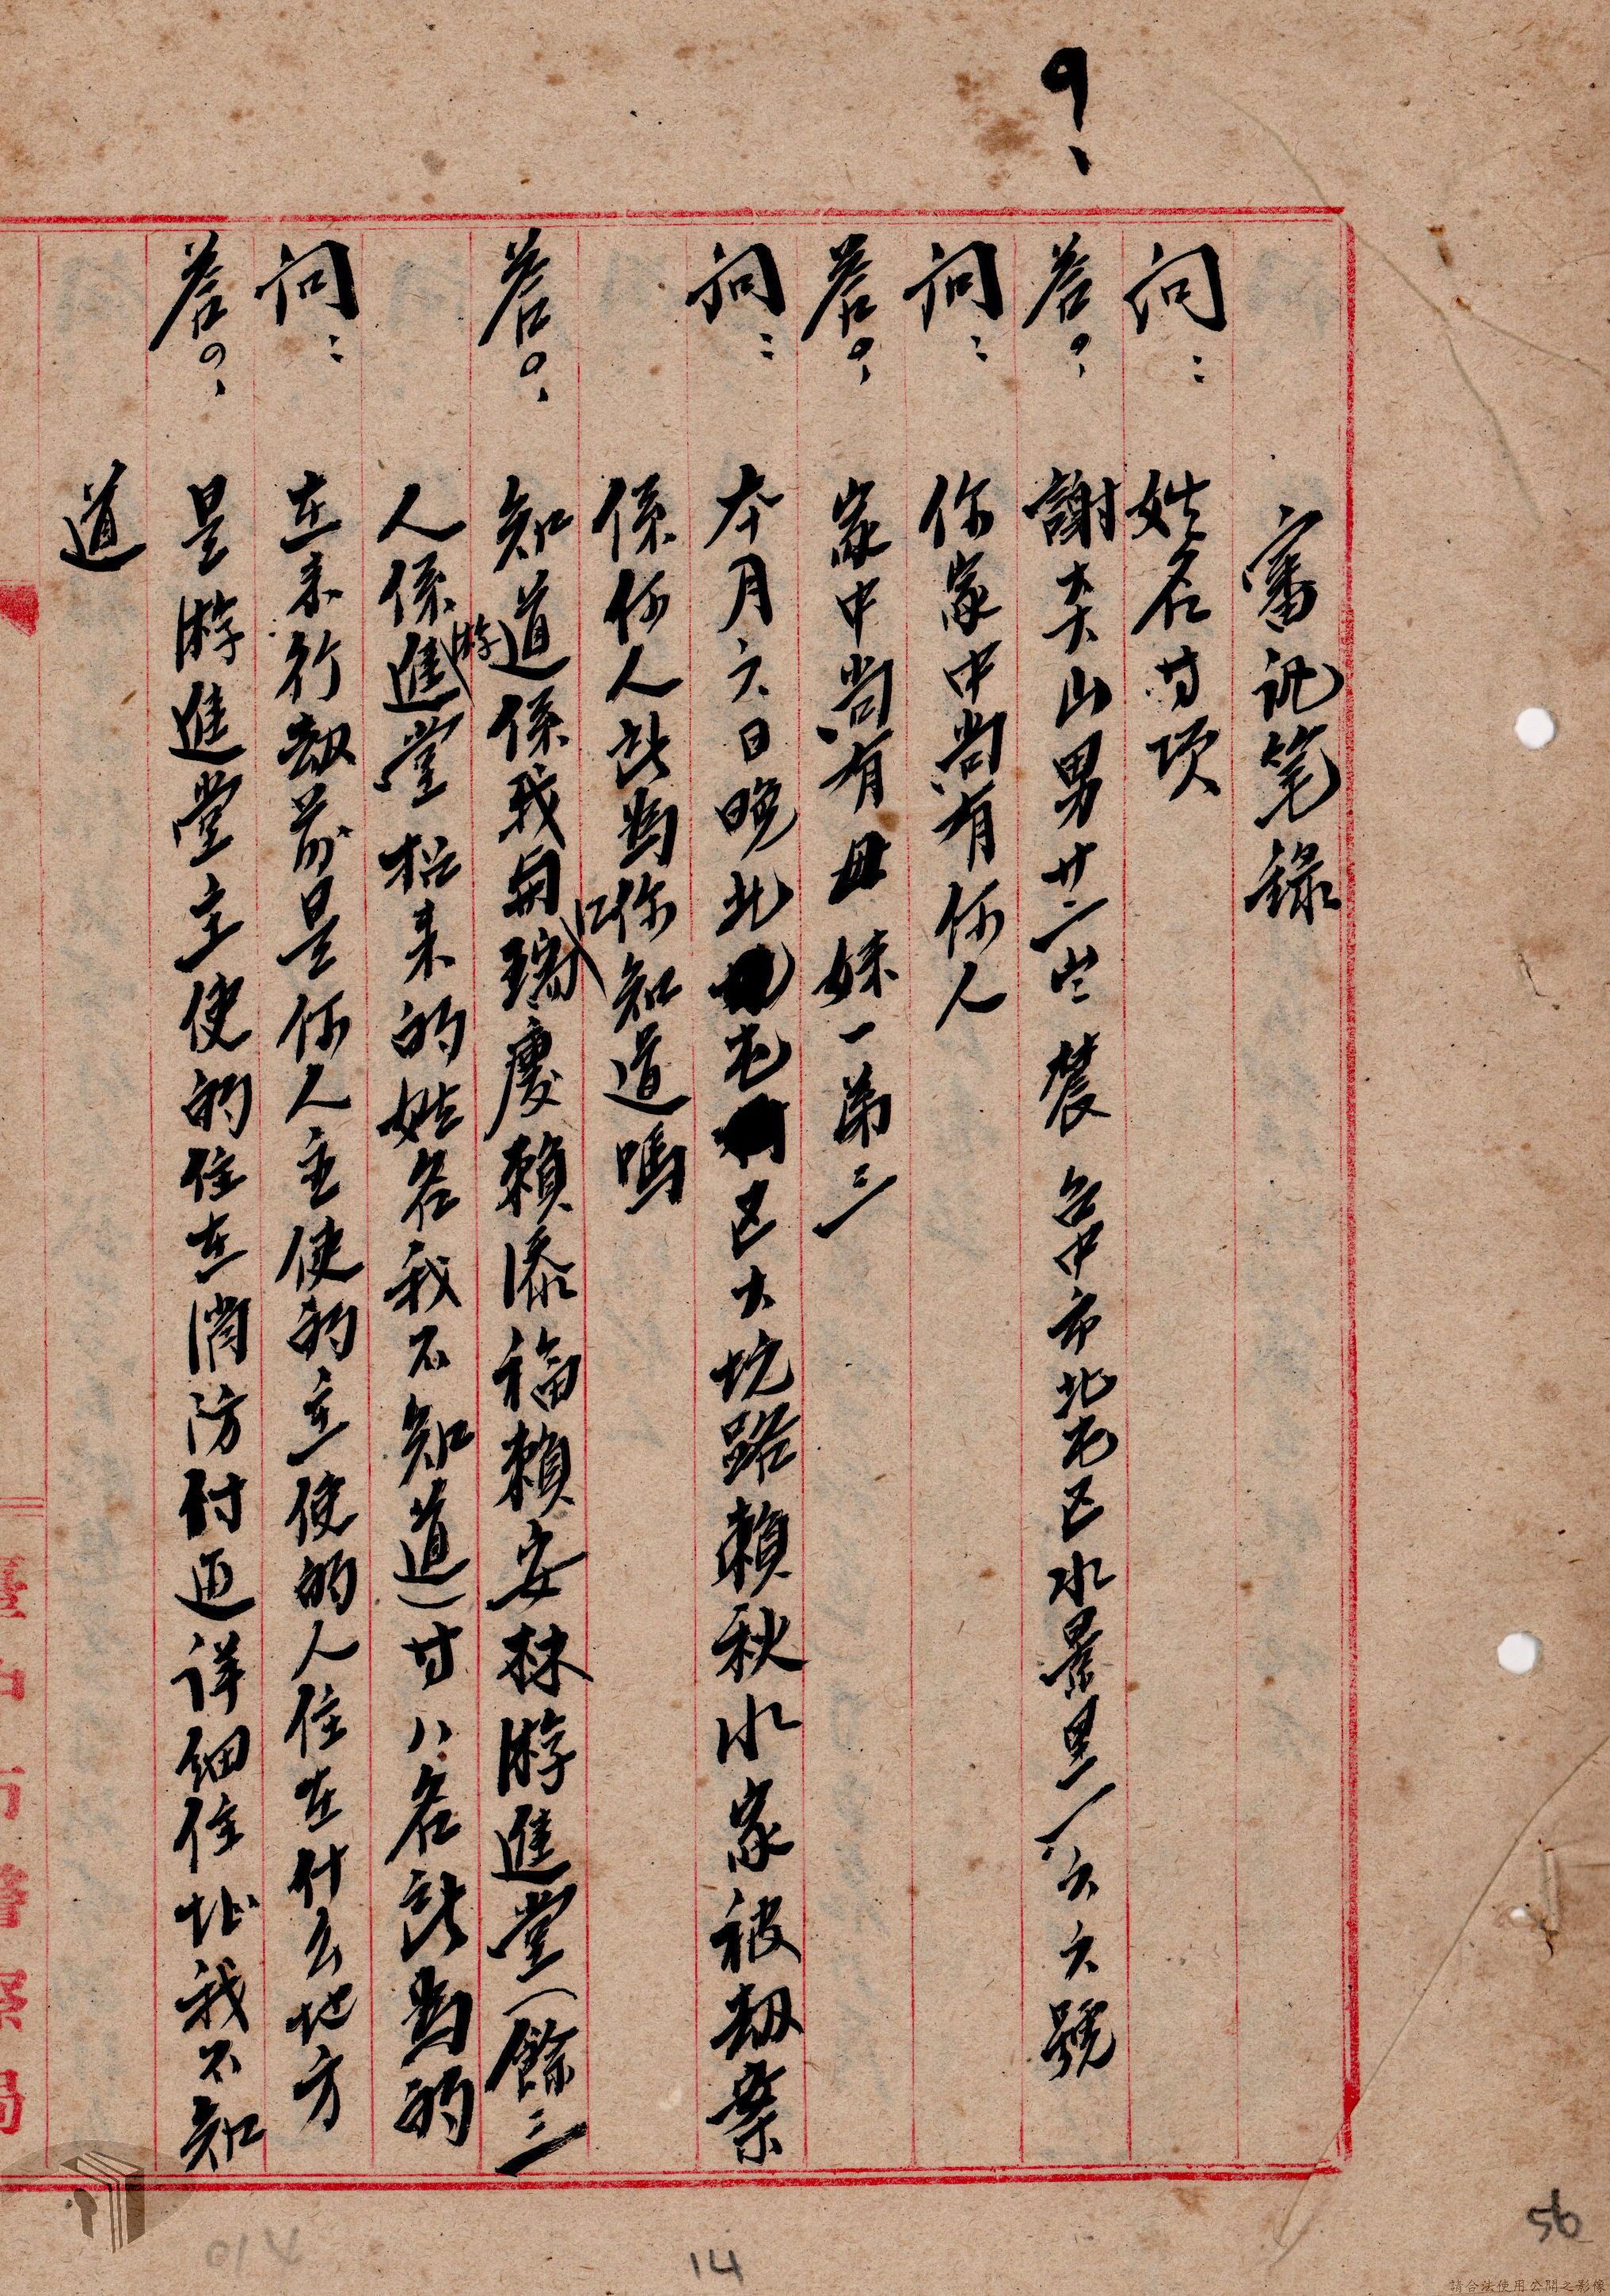 9、
審訊笔錄
问：姓名廿項
答：謝大山男廿二岁 農 台中市北屯区水景里一六六號
问：你家中尚有何人
答：家中尚有母妹一弟三
问：本月六日晚北屯区大坑路賴秋水家被劫案
係何人所為你知道嗎
答：知道係我與江瑞慶賴添福賴安林游進堂(餘三
人係游進堂招来的姓名我不知道)廿八名所為的
问：在未行劫前是何人主使的主使的人住在什么地方
答：是游進堂主使的住在消防付近详细住址我不知
道
臺中市警察局
014
14
56
請合法使用公開之影像